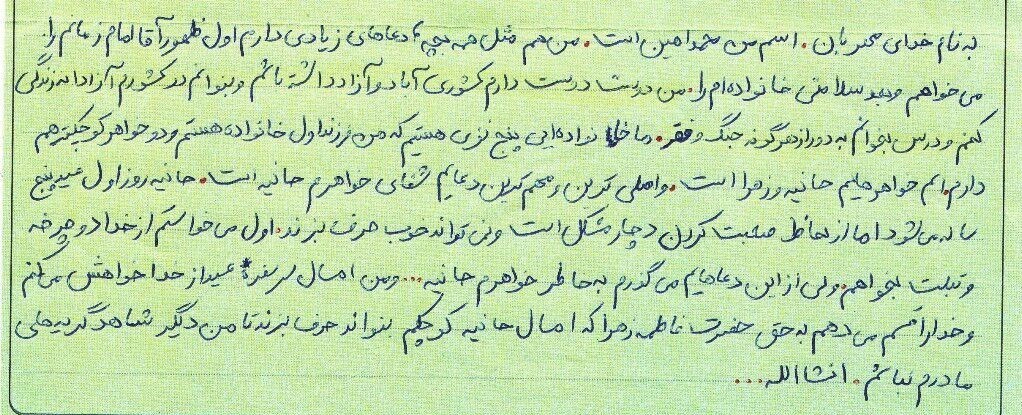 به نام خدای مهربان. اسم من محمد امین است. من هم مثل همه بچه ها دعاهای زیادی دارم اول ظهور آقا امام زمانم را
می خواهم و بعد سلامتی خانواده ام را. من دوست دوست دارم کشوری آباد و آزاد داشته باشم و بتوانم در کشورم آزادانه زندگی
کنم و درس بخوانم به دور از هر گونه جنگ و فقر. ما خانواده ایی پنج نفری هستیم که من فرزند اول خانواده هستم و دو خواهر کوچکتر هم
دارم. اسم خواهرهایم حانیه و زهرا است. و اصلی ترین و مهم ترین دعایم شفای خواهرم حانیه است. حانیه روز اول عید پنج
ساله می شود اما از لحاظ صحبت کردن دچار مشکل است و نمی تواند خوب حرف بزند. اول می خواستم از خدا دوچرخه
و تبلت بخواهم. ولی از این دعاهایم می گذرم به خاطر خواهرم حانیه... و من امسال سر سفره عید از خدا خواهش می کنم
و خدا را قسم می دهم به حق حضرت فاطمه زهرا که امسال حانیه کوچکم بتواند حرف بزند تا من دیگر شاهد گریه های
مادرم نباشم. انشاالله...